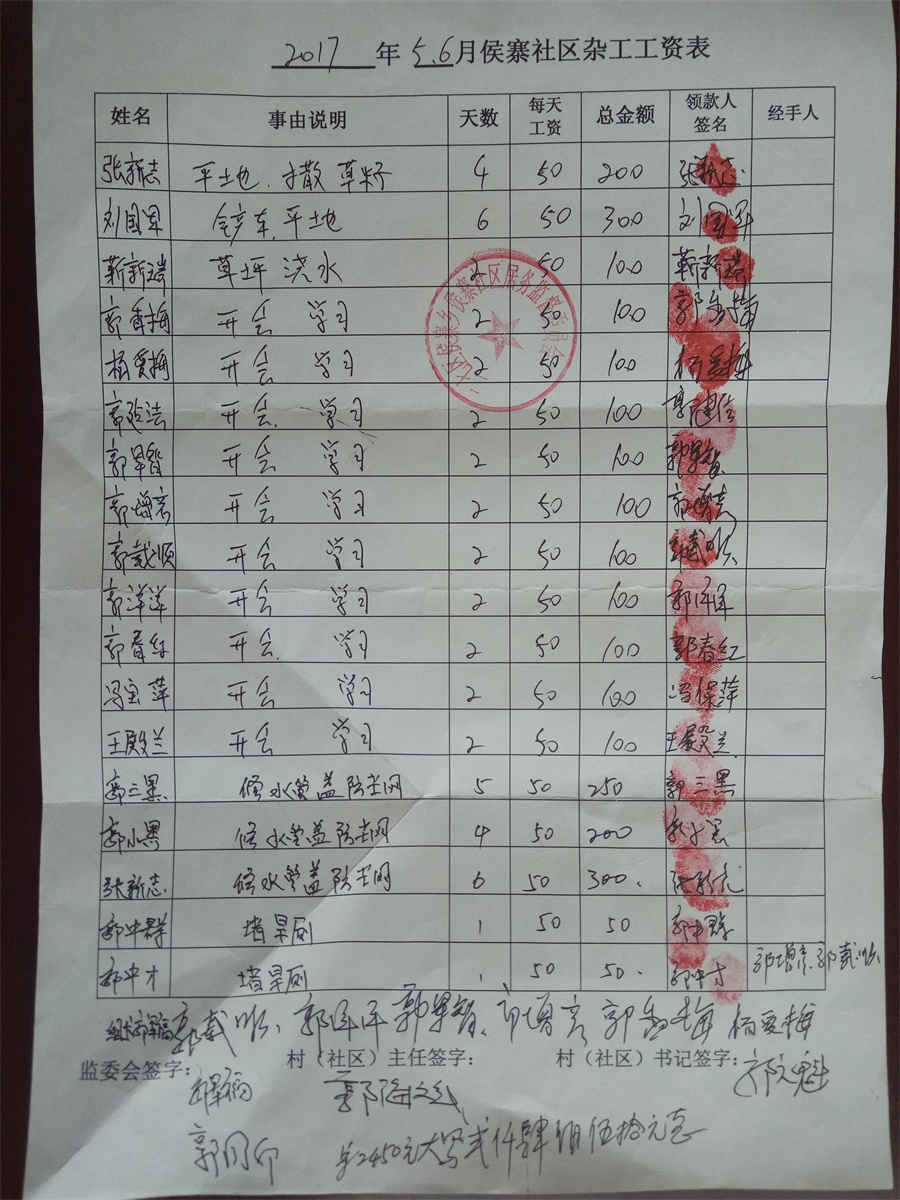 2017 年 5.6月侯寨社区杂工工资表
姓名 事由说明 天数 每天工资 总金额 领款人签名 经手人
张新志 平土地.撒草籽 4 50 200 张新志
刘国军 铲车.平土地 6 50 300 刘国军
靳新瑞 草坪浇水 2 50 100 靳新瑞
郭香梅 开会 学习 2 50 100
杨爱梅 开会 学习 2 50 100 杨爱梅
开会 学习 2 50 100
郭军智 开会 学习 2 50 100 郭军智
开会 学习 2 50 100
郭戴顺 开会 学习 2 50 100 郭戴顺
郭洋洋 开会 学习 2 50 100 郭洋洋
郭春红 开会 学习 2 50 100 郭春红
冯宝萍 开会 学习 2 50 100 冯保萍
王殿兰 开会 学习 2 50 100 王殿兰
郭三黑 修水管盖防尘网 5 50 250 郭三黑
郭小黑 修水管盖防尘网 4 50 200 郭小黑
张新志 修水管盖防尘网 6 50 300. 张新志
郭中群 堵旱厕 1 50 50 郭中群
郭中才 堵旱厕 1 50 50. 郭中才
二七区侯寨乡侯寨社区居务监督委员会
杨爱梅
监委会签字: 村（社区）主任签字: 村（社区）书记签字:
共2450元大写贰仟肆佰伍拾元志